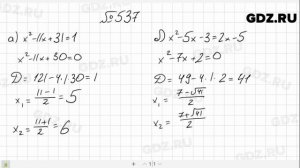 GDZ.RU
№537
а) x²-11x+31=1
x²-11x+30=0
D=121-4·1·30=1
x₁=(11-1)/2=5
x₂=(11+1)/2=6
x²-5x-3=2x-5
x²-7x+2=0
D=49-4·1·2=41
x₁=(7-√41)/2
x₂=(7+√41)/2
GDZ.RU